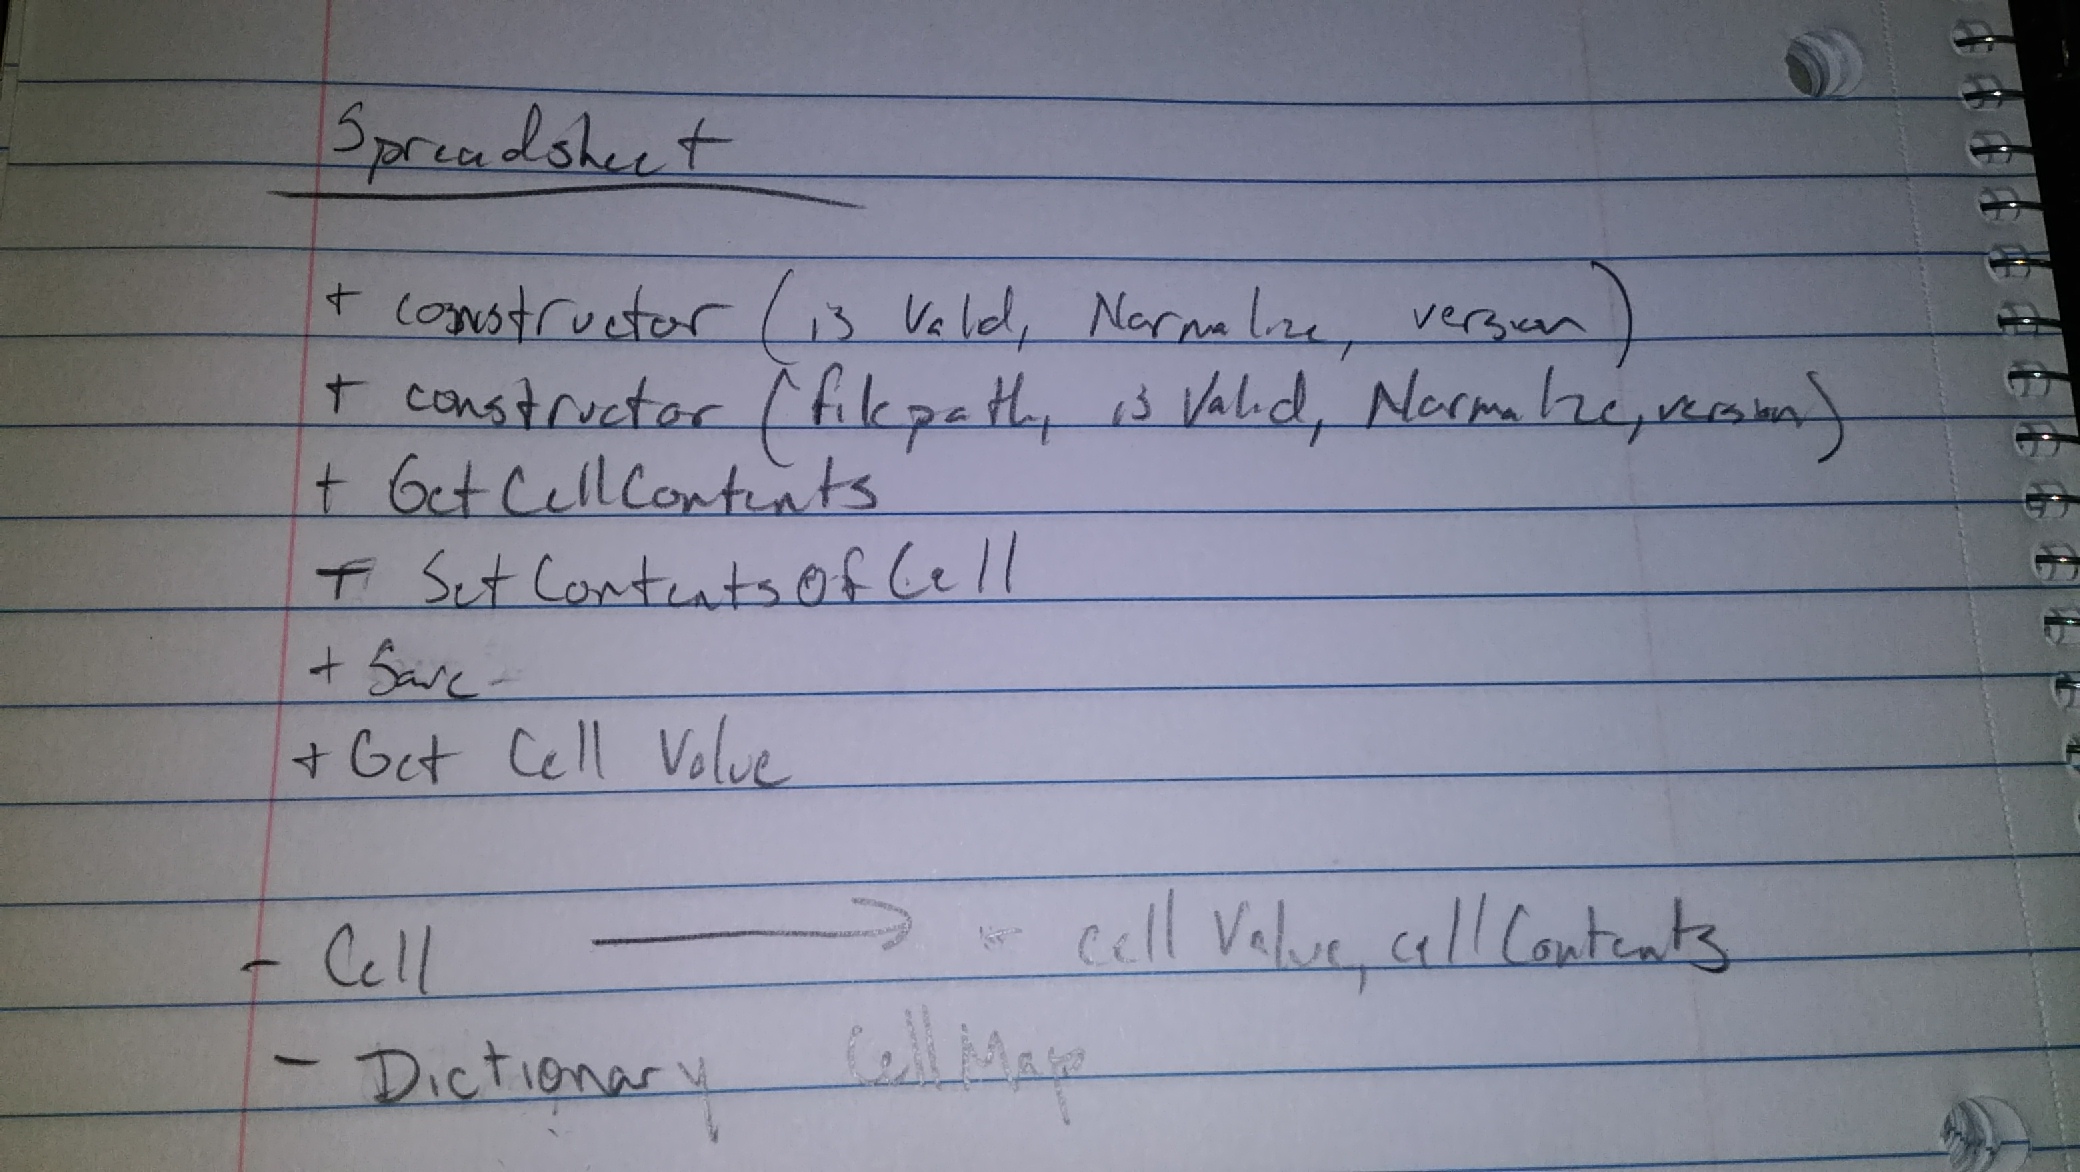 Spreadsheet
+ constructor (is Valid, Normalize, version)
+ constructor (filepath, is Valid, Normalize, version)
+ GetCellContents
+ SetContentsOfCell
+ Save
+ Get Cell Value
- Cell → cell Value, cell Contents
- Dictionary CellMap